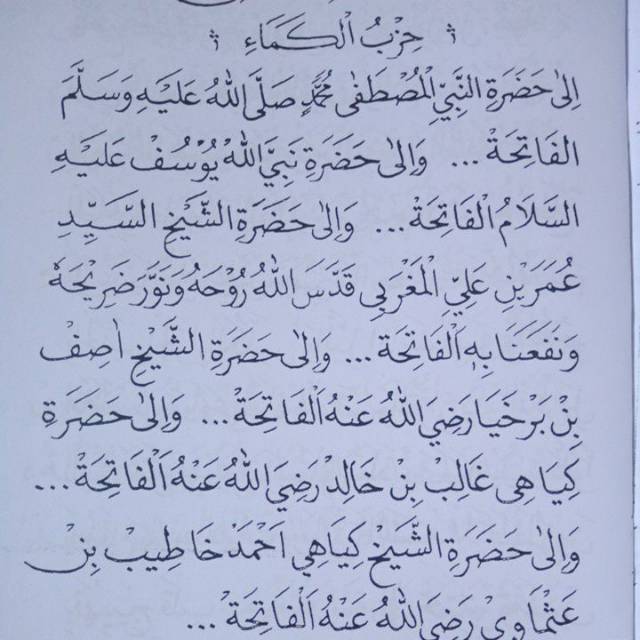 حِزْبُ الْكَمَاءِ
اِلىٰ حَضَرَةِ النَّبِيِّ الْمُصْطَفٰى مُحَمَّدٍ صَلَّى اللهُ عَلَيْهِ وَسَلَّمَ
الفَاتِحَةْ ... وَاِلىٰ حَضَرَةِ نَبِيِّ اللهْ يُوْسُفْ عَلَيْهِ
السَّلَامُ الْفَاتِحَةْ ... وَاِلىٰ حَضَرَةِ الشَّيْخِ السَّيِّدِ
عُمَرَ بْنِ عَلِيِّ الْمَغْرَبِى قَدَّسَ اللهُ رُوْحَهُ وَنَوَّرَ ضَرِيْحَهُ
وَنَفَعَنَا بِهِ اَلْفَاتِحَة ... وَاِلىٰ حَضَرَةِ الشَّيْخِ اٰصِفْ
بِنْ بَرْخَيَا رَضِيَ اللهُ عَنْهُ اَلْفَاتِحَةْ ... وَاِلىٰ حَضَرَةِ
كِيَاهِى غَالِبْ بِنْ خَالِدْ رَضِيَ اللهُ عَنْهُ اَلْفَاتِحَةْ ...
وَاِلىٰ حَضَرَةِ الشَّيَخْ كِيَاهِي اَحْمَدْ خَاطِيبْ بِنْ
عَثْمَاوِىْ رَضِيَ اللهُ عَنْهُ اَلْفَاتِحَةْ ...